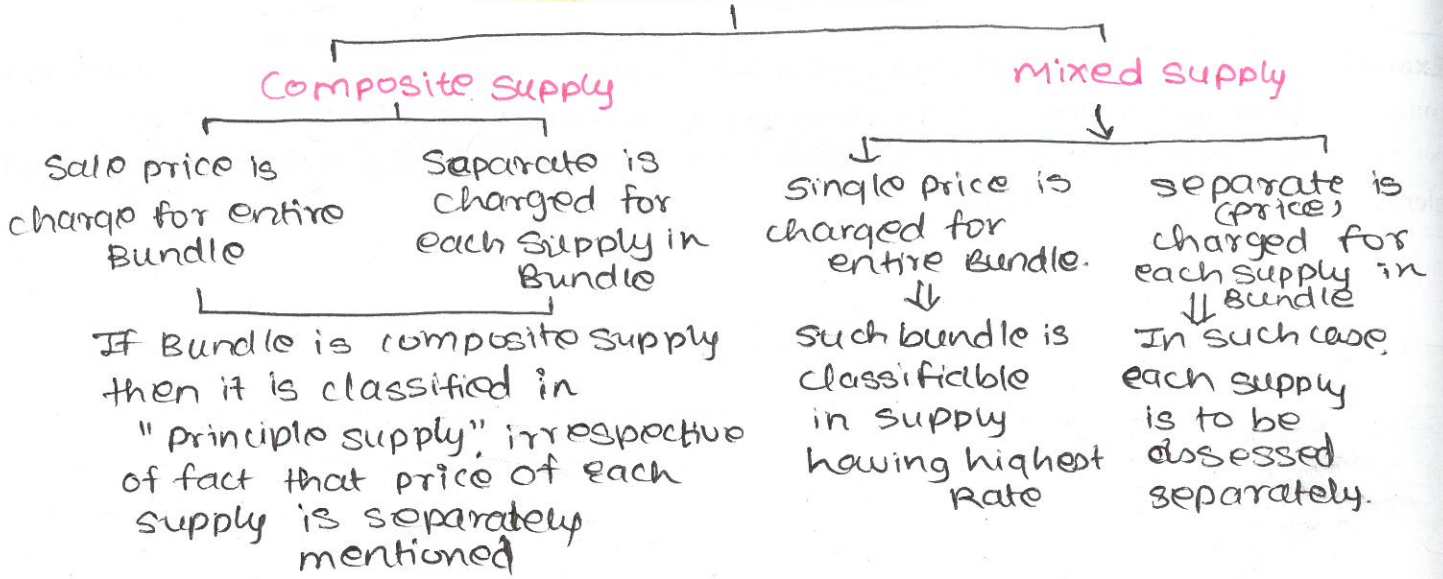 Composite supply
Mixed supply
Sale price is
charge for entire
Bundle
Saparate is
charged for
each supply in
Bundle
If Bundle is composite supply
then it is classified in
"principle supply", irrespective
of fact that price of each
supply is separately
mentioned
single price is
charged for
entire Bundle.
such bundle is
classificlble
in supply
having highest
Rate
separate is
(price)
charged for
each supply in
Bundle
In such case,
each supply
is to be
assessed
separately.